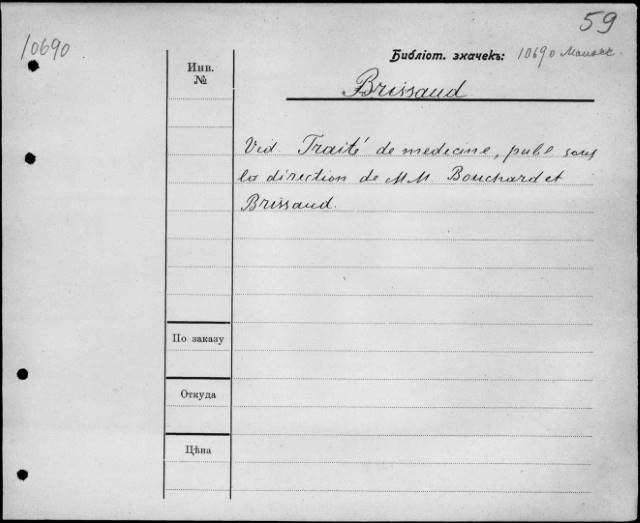 59
10690
Библіот. значекъ: 10690
Инв. №
Brissaud
Vid. Traité de medecine, publ sous
la direction de MM Bouchard et
Brissaud.
По заказу
Откуда
Цѣна